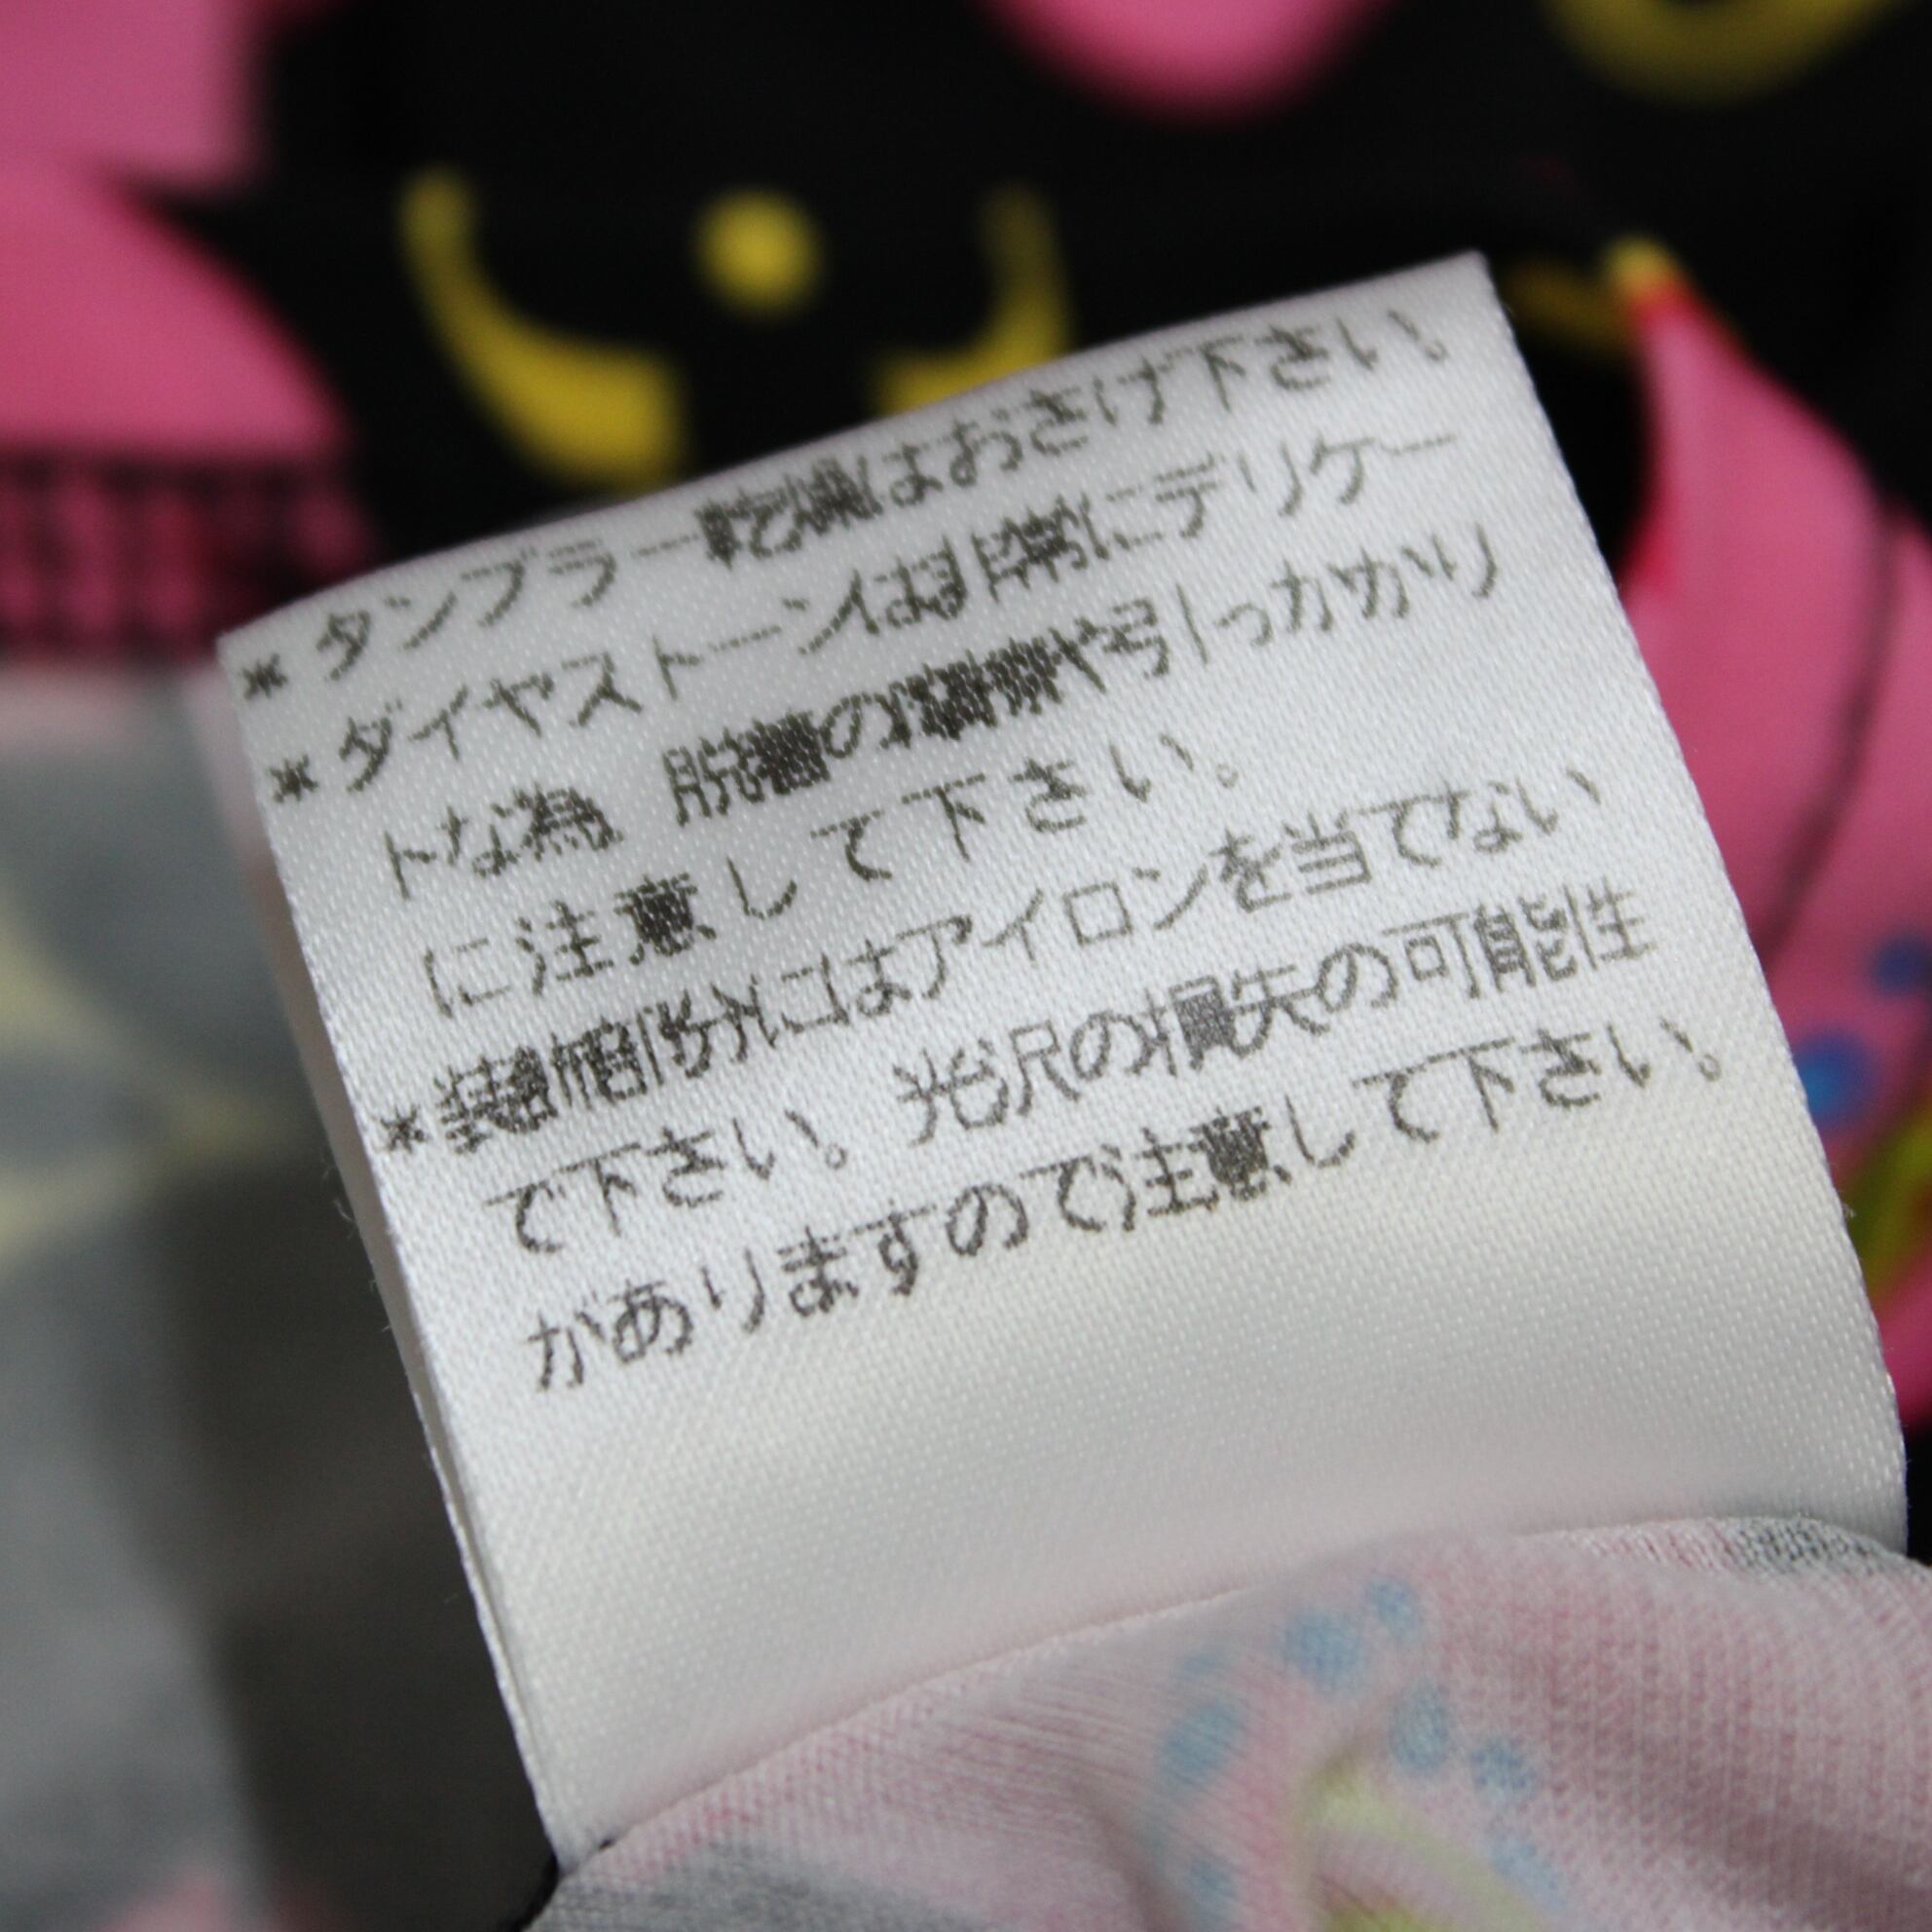 *タンブラー乾燥はおさけ下さい。
*ダイヤストーンは非常にデリケー
トな為 脱着の摩擦や引っかかり
に注意して下さい。
*装飾部分にはアイロンを当てない
で下さい。光沢の損失の可能性
がありますので注意して下さい。